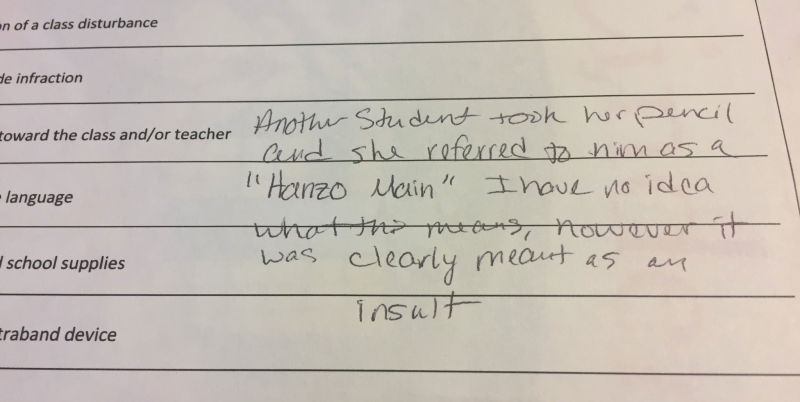 on of a class disturbance
de infraction
toward the class and/or teacher
Another Student took her pencil
and she referred to him as a
language
"Hanzo Main" I have no idea
what this means, however it
school supplies
was clearly meant as an
insult
traband device